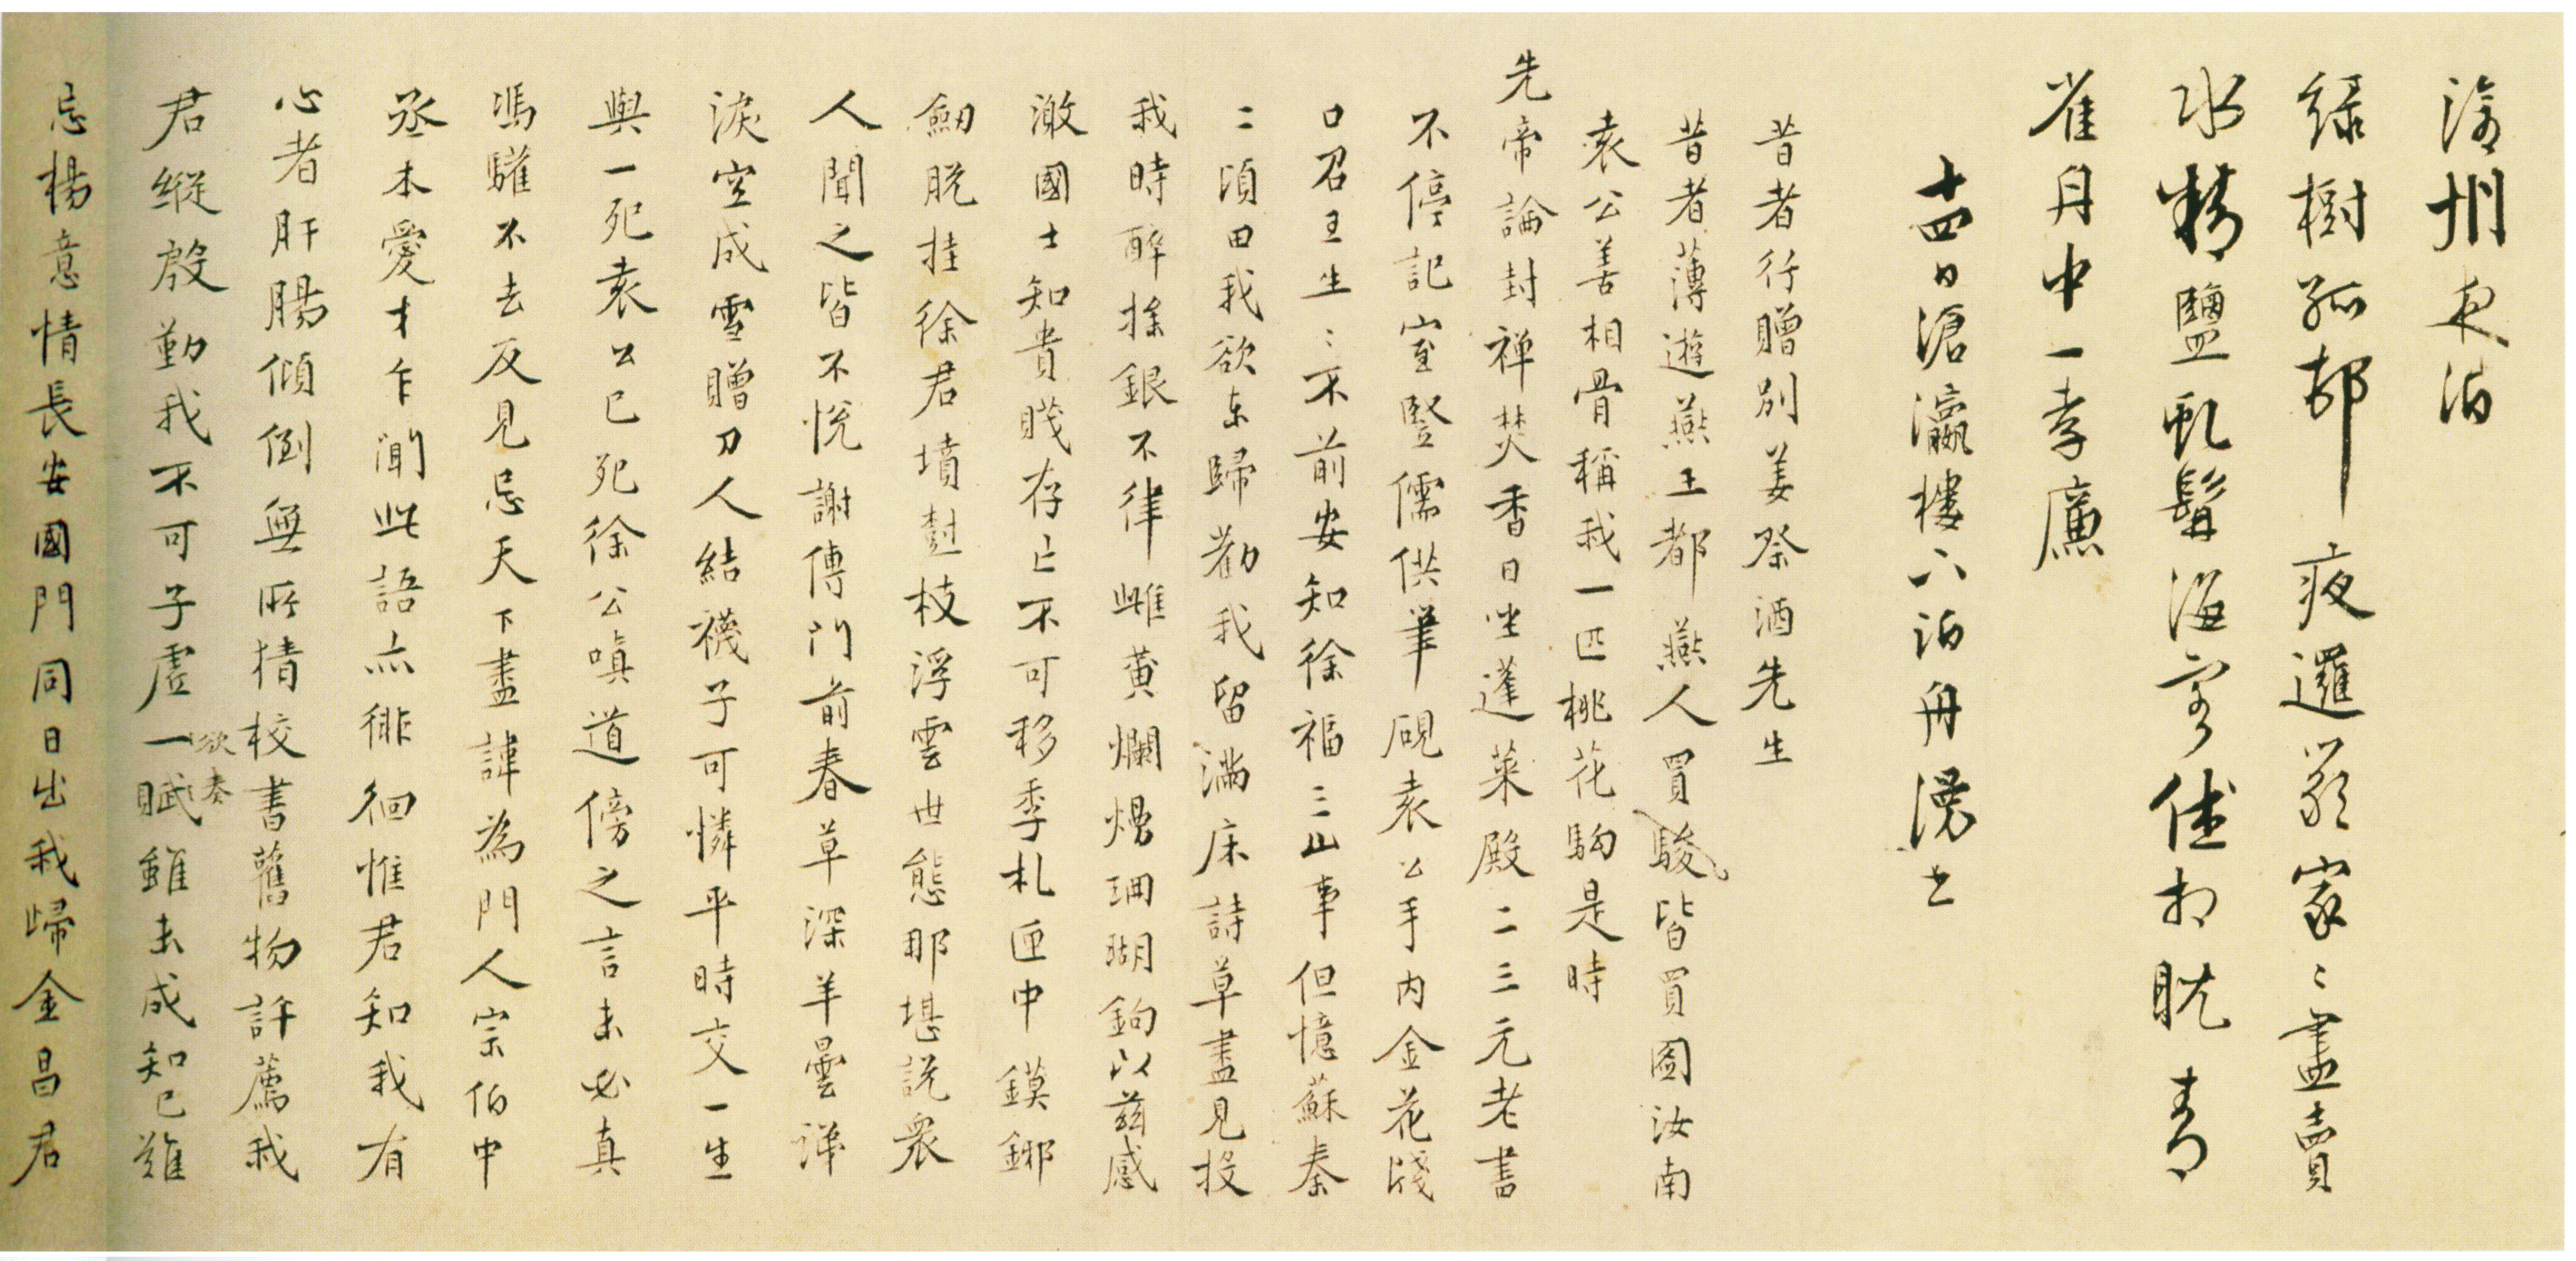 滄州夜泊
綠樹孤邨夜邏嚴家〻盡賣
水精鹽虬髯海客佳相眈青
雀月中一孝廉
十四日滄瀛樓下泊舟漫士
昔者行贈別姜祭酒先生
昔者薄遊燕王都燕人買駿皆買圖汝南
袁公善相骨稱我一匹桃花駒是時
先帝論封禪焚香日坐蓬萊殿二三元老書
不停記室豎儒供筆硯袁公手內金花牋
口召王生〻不前安知徐福三山事但憶蘇秦
二頃田我欲東歸勸我留滿床詩草盡見投
我時醉捺銀不律雌黃爛熳珊瑚鉤以茲感
激國士知貴賤存亡不可移季札匣中鏌鋣
劒脫挂徐君墳樹枝浮雲世態那堪說衆
人聞之皆不悅謝傅門前春草深羊曇譁
淚空成雪贈刀人結襪子可憐平時交一生
與一死袁公已死徐公嗔道傍之言未必真
馮驩不去反見忌天下盡諱為門人宗伯中
丞本愛才乍聞此語亦徘徊惟君知我有
心者肝腸傾倒無所猜校書舊物許薦我
君縱慇勤我不可子虛一賦雖未成知己難
欲奏
忘楊意情長安國門同日出我歸金昌君